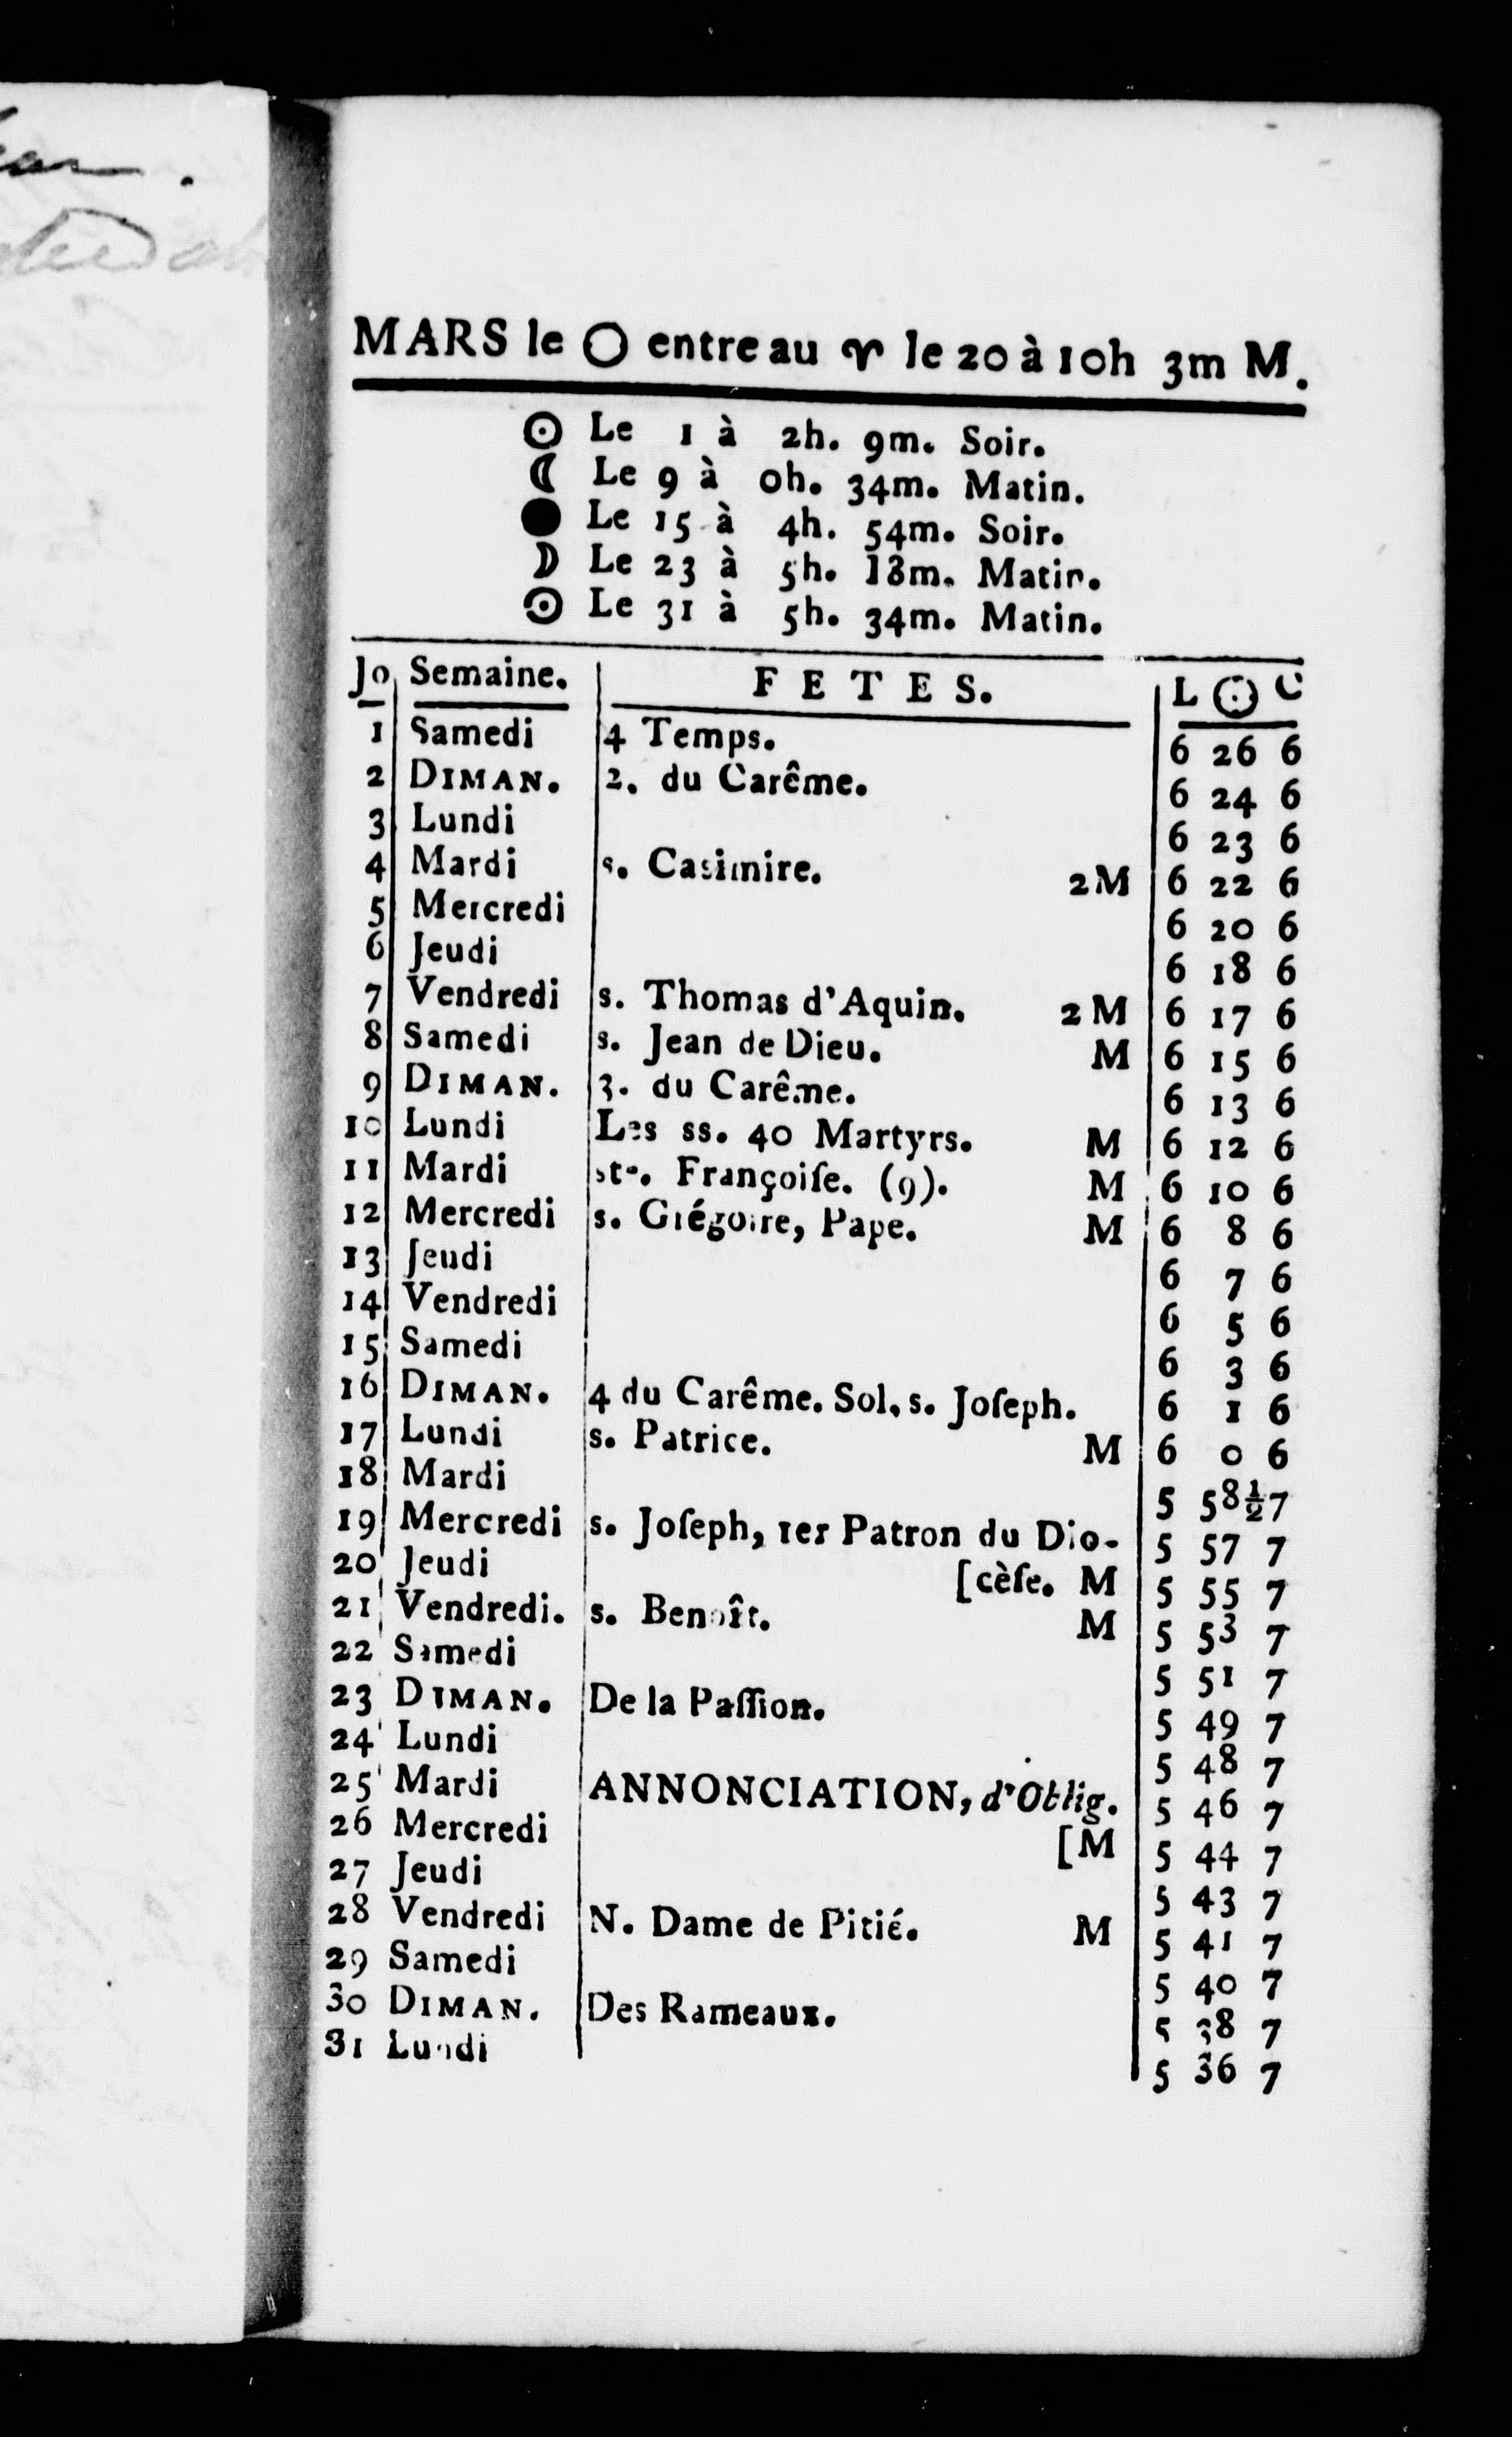 MARS le ○ entre au ♈ le 20 à 10h 3m M.
☉ Le 1 à 2h. 9m. Soir.
☾ Le 9 à 0h. 34m. Matin.
● Le 15 à 4h. 54m. Soir.
☽ Le 23 à 5h. 18m. Matin.
☉ Le 31 à 5h. 34m. Matin.
Jo Semaine. FETES. L ☉ C
1 Samedi 4 Temps. 6 26 6
2 DIMAN. 2. du Carême. 6 24 6
3 Lundi 6 23 6
4 Mardi s. Casimire. 2M 6 22 6
5 Mercredi 6 20 6
6 Jeudi 6 18 6
7 Vendredi s. Thomas d'Aquin. 2M 6 17 6
8 Samedi s. Jean de Dieu. M 6 15 6
9 DIMAN. 3. du Carême. 6 13 6
10 Lundi Les ss. 40 Martyrs. M 6 12 6
11 Mardi ste. Françoiſe. (9). M 6 10 6
12 Mercredi s. Grégoire, Pape. M 6 8 6
13 Jeudi 6 7 6
14 Vendredi 6 5 6
15 Samedi 6 3 6
16 DIMAN. 4 du Carême. Sol. s. Joſeph. 6 1 6
17 Lundi s. Patrice. M 6 0 6
18 Mardi 5 58½ 7
19 Mercredi s. Joſeph, 1er Patron du Dio- 5 57 7
20 Jeudi [cèſe. M 5 55 7
21 Vendredi. s. Benoît. M 5 53 7
22 Samedi 5 51 7
23 DIMAN. De la Paſſion. 5 49 7
24 Lundi 5 48 7
25 Mardi ANNONCIATION, d'Oblig. 5 46 7
26 Mercredi [M 5 44 7
27 Jeudi 5 43 7
28 Vendredi N. Dame de Pitié. M 5 41 7
29 Samedi 5 40 7
30 DIMAN. Des Rameaux. 5 38 7
31 Lundi 5 36 7